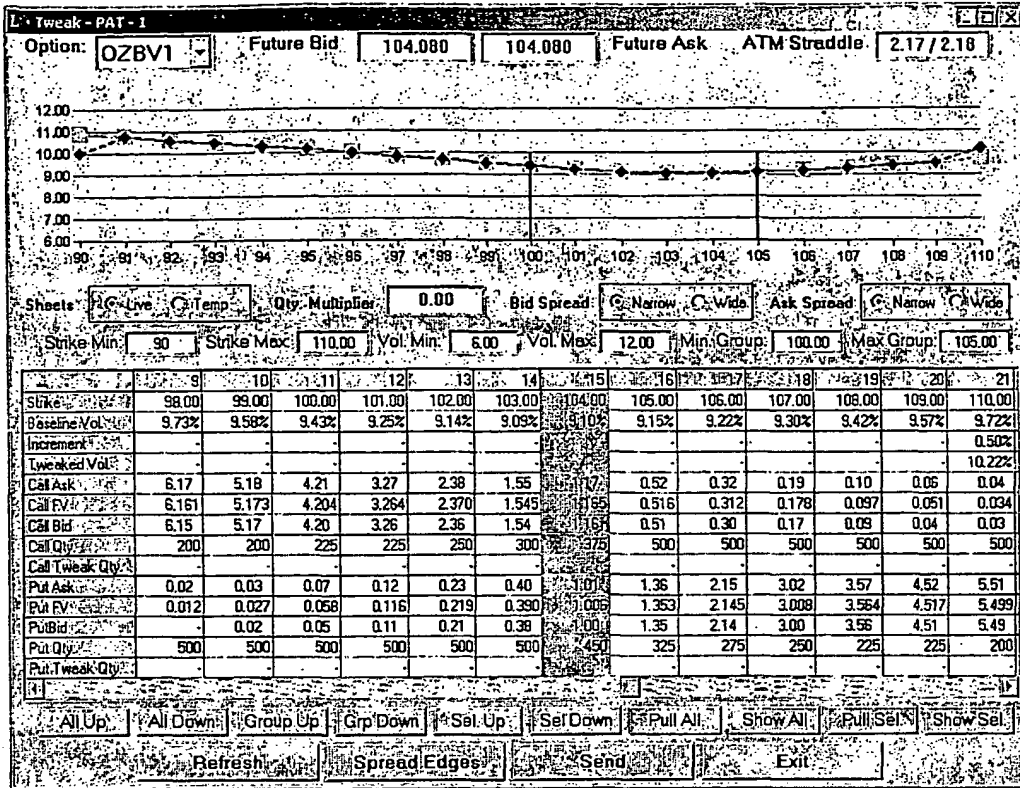 Tweak - PAT - 1
Option: OZBV1 Future Bid 104.080 104.080 Future Ask ATM Straddle 2.17 / 2.18
12.00
11.00
10.00
9.00
8.00
7.00
6.00
90 91 92 93 94 95 96 97 98 99 100 101 102 103 104 105 106 107 108 109 110
Sheets Live Temp Qty. Multiplier 0.00 Bid Spread Narrow Wide Ask Spread Narrow Wide
Strike Min: 90 Strike Max: 110.00 Vol. Min: 6.00 Vol. Max: 12.00 Min. Group: 100.00 Max Group: 105.00
9 10 11 12 13 14 15 16 17 18 19 20 21
Strike 98.00 99.00 100.00 101.00 102.00 103.00 104.00 105.00 106.00 107.00 108.00 109.00 110.00
Baseline Vol. 9.73% 9.58% 9.43% 9.25% 9.14% 9.09% 9.10% 9.15% 9.22% 9.30% 9.42% 9.57% 9.72%
Increment - - - - - - - - - - - 0.50%
Tweaked Vol. - - - - - - - - - - - 10.22%
Call Ask 6.17 5.18 4.21 3.27 2.38 1.55 0.52 0.32 0.19 0.10 0.06 0.04
Call F.V. 6.161 5.173 4.204 3.264 2.370 1.545 0.516 0.312 0.178 0.097 0.051 0.034
Call Bid 6.15 5.17 4.20 3.26 2.36 1.54 0.51 0.30 0.17 0.09 0.04 0.03
Call Qty 200 200 225 225 250 300 375 500 500 500 500 500 500
Call Tweak Qty - - - - - - - - - - - -
Put Ask 0.02 0.03 0.07 0.12 0.23 0.40 1.01 1.36 2.15 3.02 3.57 4.52 5.51
Put F.V. 0.012 0.027 0.058 0.116 0.219 0.390 1.006 1.353 2.145 3.008 3.564 4.517 5.499
Put Bid - 0.02 0.05 0.11 0.21 0.38 1.00 1.35 2.14 3.00 3.56 4.51 5.49
Put Qty 500 500 500 500 500 500 450 325 275 250 225 225 200
Put Tweak Qty - - - - - - - - - - - -
All Up All Down Group Up Grp Down Sel. Up Sel Down Pull All Show All Pull Sel. Show Sel.
Refresh Spread Edges Send Exit